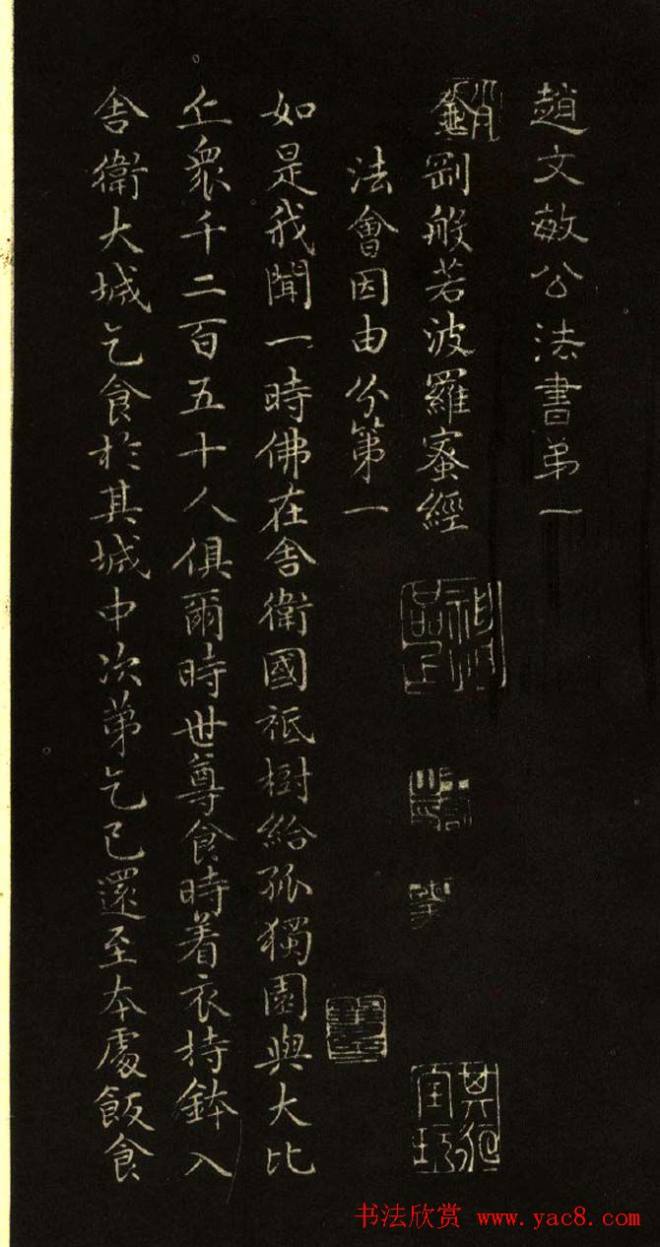 趙文敏公法書弟一
金剛般若波羅蜜經
法會因由分第一
如是我聞一時佛在舍衛國祇樹給孤獨園與大比
丘衆千二百五十人俱爾時世尊食時着衣持鉢入
舍衛大城乞食於其城中次第乞已還至本處飯食
书法欣赏 www.yac8.com